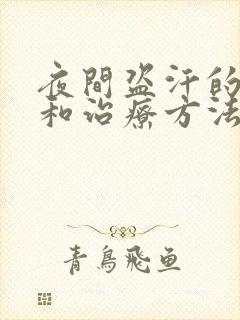 夜間盗汗的
和治療方法
青鳥飛鱼